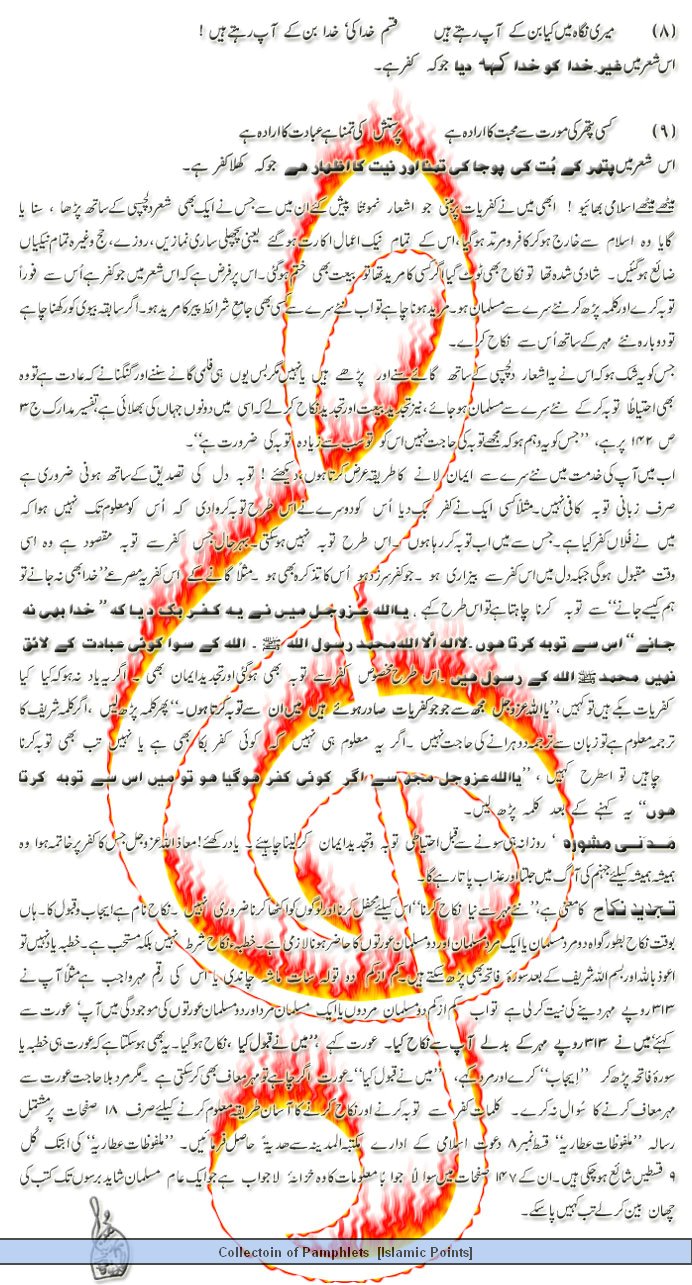 (۸) میری نگاہ میں کیا بن کے آپ رہتے ہیں قسم خدا کی' خدا بن کے آپ رہتے ہیں !
اس شعر میں غیر خدا کو خدا کہہ دیا جو کہ کفر ہے۔
(۹) کسی پتھر کی مورت سے محبت کا ارادہ ہے پرستش کی تمنا ہے عبادت کا ارادہ ہے
اس شعر میں پتھر کے بُت کی پوجا کی تمنا اور نیت کا اظہار ہے جو کہ کھلا کفر ہے۔
میٹھے میٹھے اسلامی بھائیو ! ابھی میں نے کفریات پر مبنی جو اشعار نمونتاً پیش کئے ان میں سے جس نے ایک بھی شعر دلچسپی کے ساتھ پڑھا ، سنا یا
گایا وہ اسلام سے خارج ہو کر کافر و مرتد ہو گیا، اس کے تمام نیک اعمال اکارت ہو گئے یعنی پچھلی ساری نمازیں، روزے، حج وغیرہ تمام نیکیاں
ضائع ہو گئیں۔ شادی شدہ تھا تو نکاح بھی ٹوٹ گیا اگر کسی کا مرید تھا تو بیعت بھی ختم ہو گئی۔ اس پر فرض ہے کہ اس شعر میں جو کفر ہے اُس سے فوراً
توبہ کرے اور کلمہ پڑھ کر نئے سرے سے مسلمان ہو۔ مرید ہونا چاہے تو اب نئے سرے سے کسی بھی جامع شرائط پیر کا مرید ہو۔ اگر سابقہ بیوی کو رکھنا چاہے
تو دوبارہ نئے مہر کے ساتھ اُس سے نکاح کرے۔
جس کو یہ شک ہو کہ اس نے یہ اشعار دلچسپی کے ساتھ گائے سنے اور پڑھے ہیں یا نہیں مگر بس یوں ہی فلمی گانے سننے اور گنگنانے کی عادت ہے تو وہ
بھی احتیاطاً توبہ کر کے نئے سرے سے مسلمان ہو جائے، نیز تجدید بیعت اور تجدید نکاح کر لے کہ اسی میں دونوں جہاں کی بھلائی ہے، تفسیر مدارک ج ۳
ص ۱۴۲ پر ہے، ''جس کو یہ وہم ہو کہ مجھے توبہ کی حاجت نہیں اس کو تو سب سے زیادہ توبہ کی ضرورت ہے''۔
اب میں آپ کی خدمت میں نئے سرے سے ایمان لانے کا طریقہ عرض کرتا ہوں، دیکھئے ! توبہ دل کی تصدیق کے ساتھ ہونی ضروری ہے
صرف زبانی توبہ کافی نہیں۔ مثلاً کسی ایک نے کفر بک دیا اُس کو دوسرے نے اس طرح توبہ کروا دی کہ اُس کو معلوم تک نہیں ہوا کہ
میں نے فُلاں کفر کیا ہے۔ جس سے میں اب توبہ کر رہا ہوں۔ اس طرح توبہ نہیں ہو سکتی۔ بہر حال جس کفر سے توبہ مقصود ہے وہ اسی
وقت مقبول ہو گی جبکہ دل میں اس کفر سے بیزاری ہو۔ جو کفر سرزد ہوا اُس کا تذکرہ بھی ہو۔ مثلاً گانے کے اس کفریہ مصرعے ''خدا بھی نہ جانے تو
ہم کیسے جانے'' سے توبہ کرنا چاہتا ہے تو اس طرح کہے ، یا اللہ عزوجل میں نے یہ کفر بک دیا کہ ''خدا بھی نہ
جانے'' اس سے توبہ کرتا ہوں۔ لا الٰہ الا اللہ محمد رسول اللہ ﷺ۔ اللہ کے سوا کوئی عبادت کے لائق
نہیں محمد ﷺ اللہ کے رسول ہیں۔ اس طرح مخصوص کفر سے توبہ بھی ہو گئی اور تجدید ایمان بھی۔ اگر یہ یاد نہ ہو کہ کیا کیا
کفریات بکے ہیں تو کہیں، ''یا اللہ عزوجل مجھ سے جو جو کفریات صادر ہوئے ہیں میں ان سے توبہ کرتا ہوں۔'' پھر کلمہ پڑھ لیں ، اگر کلمہ شریف کا
ترجمہ معلوم ہے تو زبان سے ترجمہ دوہرانے کی حاجت نہیں۔ اگر یہ معلوم ہی نہیں کہ کوئی کفر بکا بھی ہے یا نہیں تب بھی توبہ کرنا
چاہیں تو اسطرح کہیں ، ''یا اللہ عزوجل مجھ سے اگر کوئی کفر ہو گیا ہو تو میں اس سے توبہ کرتا
ہوں'' یہ کہنے کے بعد کلمہ پڑھ لیں۔
مَدَنی مشورہ ' روزانہ ہی سونے سے قبل احتیاطی توبہ و تجدید ایمان کر لینا چاہیئے۔ یاد رکھئے! معاذ اللہ عزوجل جس کا کفر پر خاتمہ ہوا وہ
ہمیشہ ہمیشہ کیلئے جہنم کی آگ میں جلتا اور عذاب پاتا رہے گا۔
تجدید نکاح کا معنی ہے، ''نئے مہر سے نیا نکاح کرنا'' اس کیلئے محفل کرنا اور لوگوں کو اکٹھا کرنا ضروری نہیں۔ نکاح نام ہے ایجاب و قبول کا۔ ہاں
بوقت نکاح بطور گواہ دو مرد مسلمان یا ایک مرد مسلمان اور دو مسلمان عورتوں کا حاضر ہونا لازمی ہے۔ خطبہ نکاح شرط نہیں بلکہ مستحب ہے۔ خطبہ یاد نہیں تو
اعوذ باللہ اور بسم اللہ شریف کے بعد سورۃ فاتحہ بھی پڑھ سکتے ہیں۔ کم از کم دو تولہ سات ماشہ چاندی یا اس کی رقم مہر واجب ہے مثلاً آپ نے
۳۱۳ روپے مہر دینے کی نیت کر لی ہے تو اب کم از کم دو مسلمان مردوں یا ایک مسلمان مرد اور دو مسلمان عورتوں کی موجودگی میں آپ' عورت سے
کہئے ''میں نے ۳۱۳ روپے مہر کے بدلے آپ سے نکاح کیا۔ عورت کہے ''میں نے قبول کیا ، نکاح ہو گیا۔ یہ بھی ہو سکتا ہے کہ عورت ہی خطبہ یا
سورۃ فاتحہ پڑھ کر ''ایجاب'' کرے اور مرد کہے، ''میں نے قبول کیا''۔ عورت اگر چاہے تو مہر معاف بھی کر سکتی ہے۔ مگر مرد بلا حاجت عورت سے
مہر معاف کرنے کا سُوال نہ کرے۔ کلمات کفر سے توبہ کرنے اور نکاح کرنے کا آسان طریقہ معلوم کرنے کیلئے صرف ۱۸ صفحات پر مشتمل
رسالہ ''ملفوظات عطاریہ'' قسط نمبر ۸ دعوت اسلامی کے ادارے مکتبۃ المدینہ سے ھدیۃً حاصل فرمائیں۔ ''ملفوظات عطاریہ'' کی ابتک کُل
۹ قسطیں شائع ہو چکی ہیں۔ ان کے ۱۴۷ صفحات میں سوا لاً جوا باً معلومات کا وہ خزانۂ لاجواب ہے جو ایک عام مسلمان شاید برسوں تک کتب کی
چھان بین کر لے تب کہیں پا سکے۔
Collectoin of Pamphlets [Islamic Points]